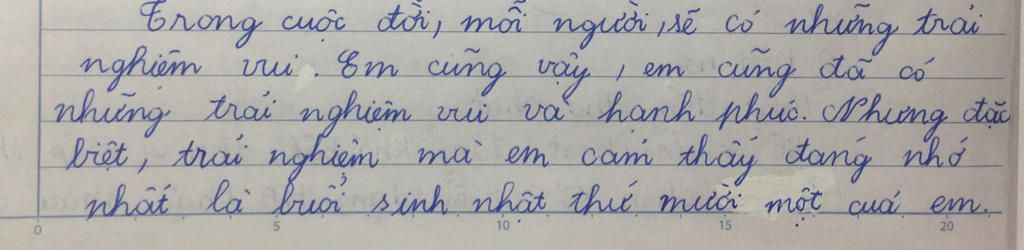 Trong cuộc đời, mỗi người, sẽ có những trải
nghiệm vui. Em cũng vậy, em cũng đã có
những trải nghiệm vui và hạnh phúc. Nhưng đặc
biệt, trải nghiệm mà em cảm thấy đáng nhớ
nhất là buổi sinh nhật thứ mười một của em.
0 5 10 15 20